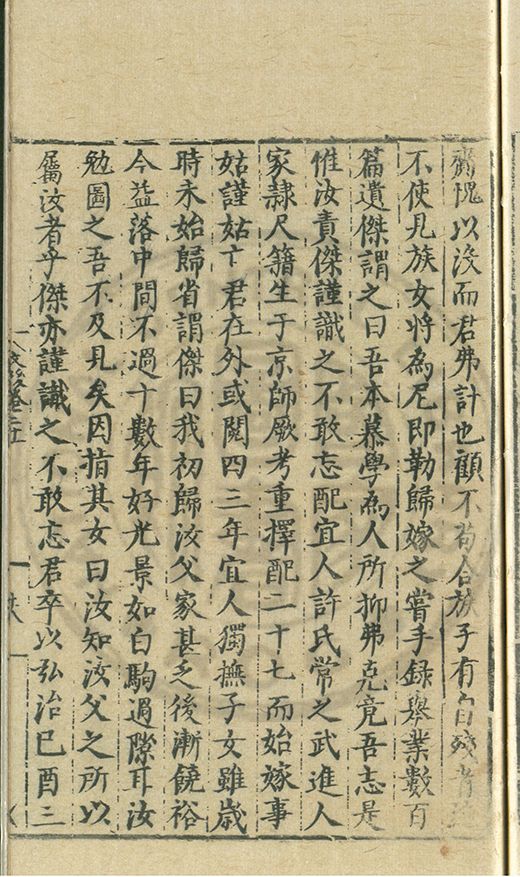 齎愧以没而君弗計也顧不苟合族子有自殘者
不使見族女將為尼即勒歸嫁之嘗手録舉業數百
篇遺傑謂之曰吾本慕學為人所抑弗克竟吾志是
惟汝責傑謹識之不敢忘配宜人許氏常之武進人
家隷尺籍生于京師厥考重擇配二十七而始嫁事
姑謹姑亡君在外或閱四三年宜人獨撫子女雖歲
時未始歸省謂傑曰我初歸汝父家甚乏後漸饒裕
今益落中間不過十數年好光景如白駒過隙耳汝
勉圖之吾不及見矣因指其女曰汝知汝父之所以
屬汝者乎傑亦謹識之不敢忘君卒以弘治己酉三